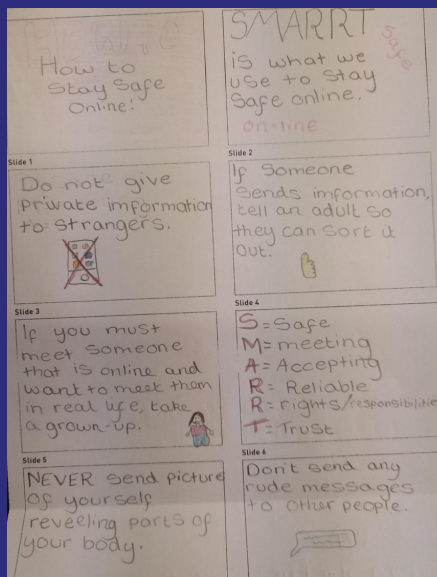 How to
Stay Safe
Online!
Slide 1
SMARRT
is what we
use to stay
Safe online.
Safe
on-line
Slide 2
Do not give
private imformation
to strangers.
Slide 3
If Someone
sends imformation,
tell an adult so
they can sort it
out.
Slide 4
If you must
meet someone
that is online and
want to meet them
in real life, take
a grown-up.
Slide 5
S=Safe
M=meeting
A=Accepting
R=Reliable
R=rights/responsibilitie
T=Trust
Slide 6
NEVER send picture
of yourself
reveeling parts of
your body.
Don't send any
rude messages
to other people.